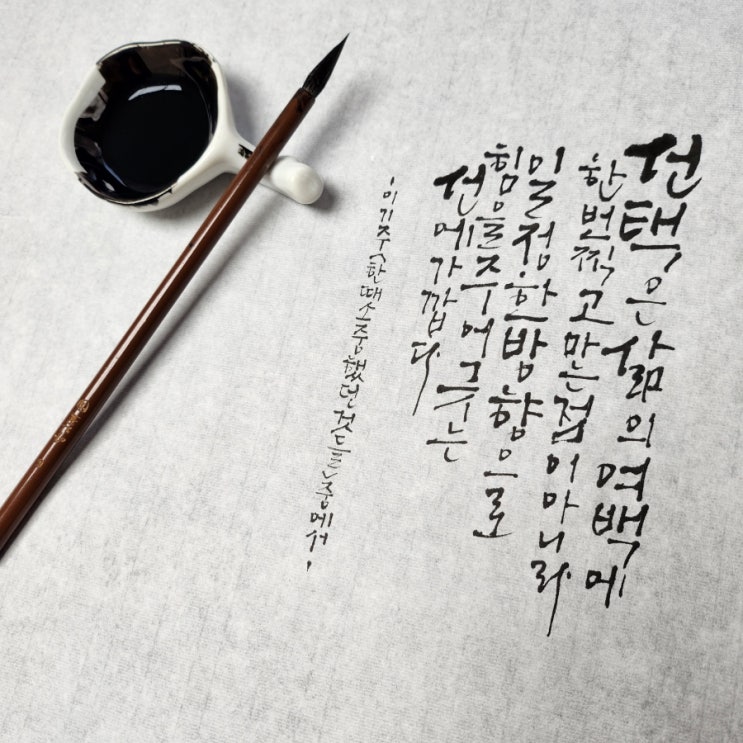 선택은 삶의 여백에
한번 찍고 마는 점이 아니라
일정한 방향으로
힘을 주어 긋는
선에 가깝다.
'이기주<한때 소중했던 것들>중에서'